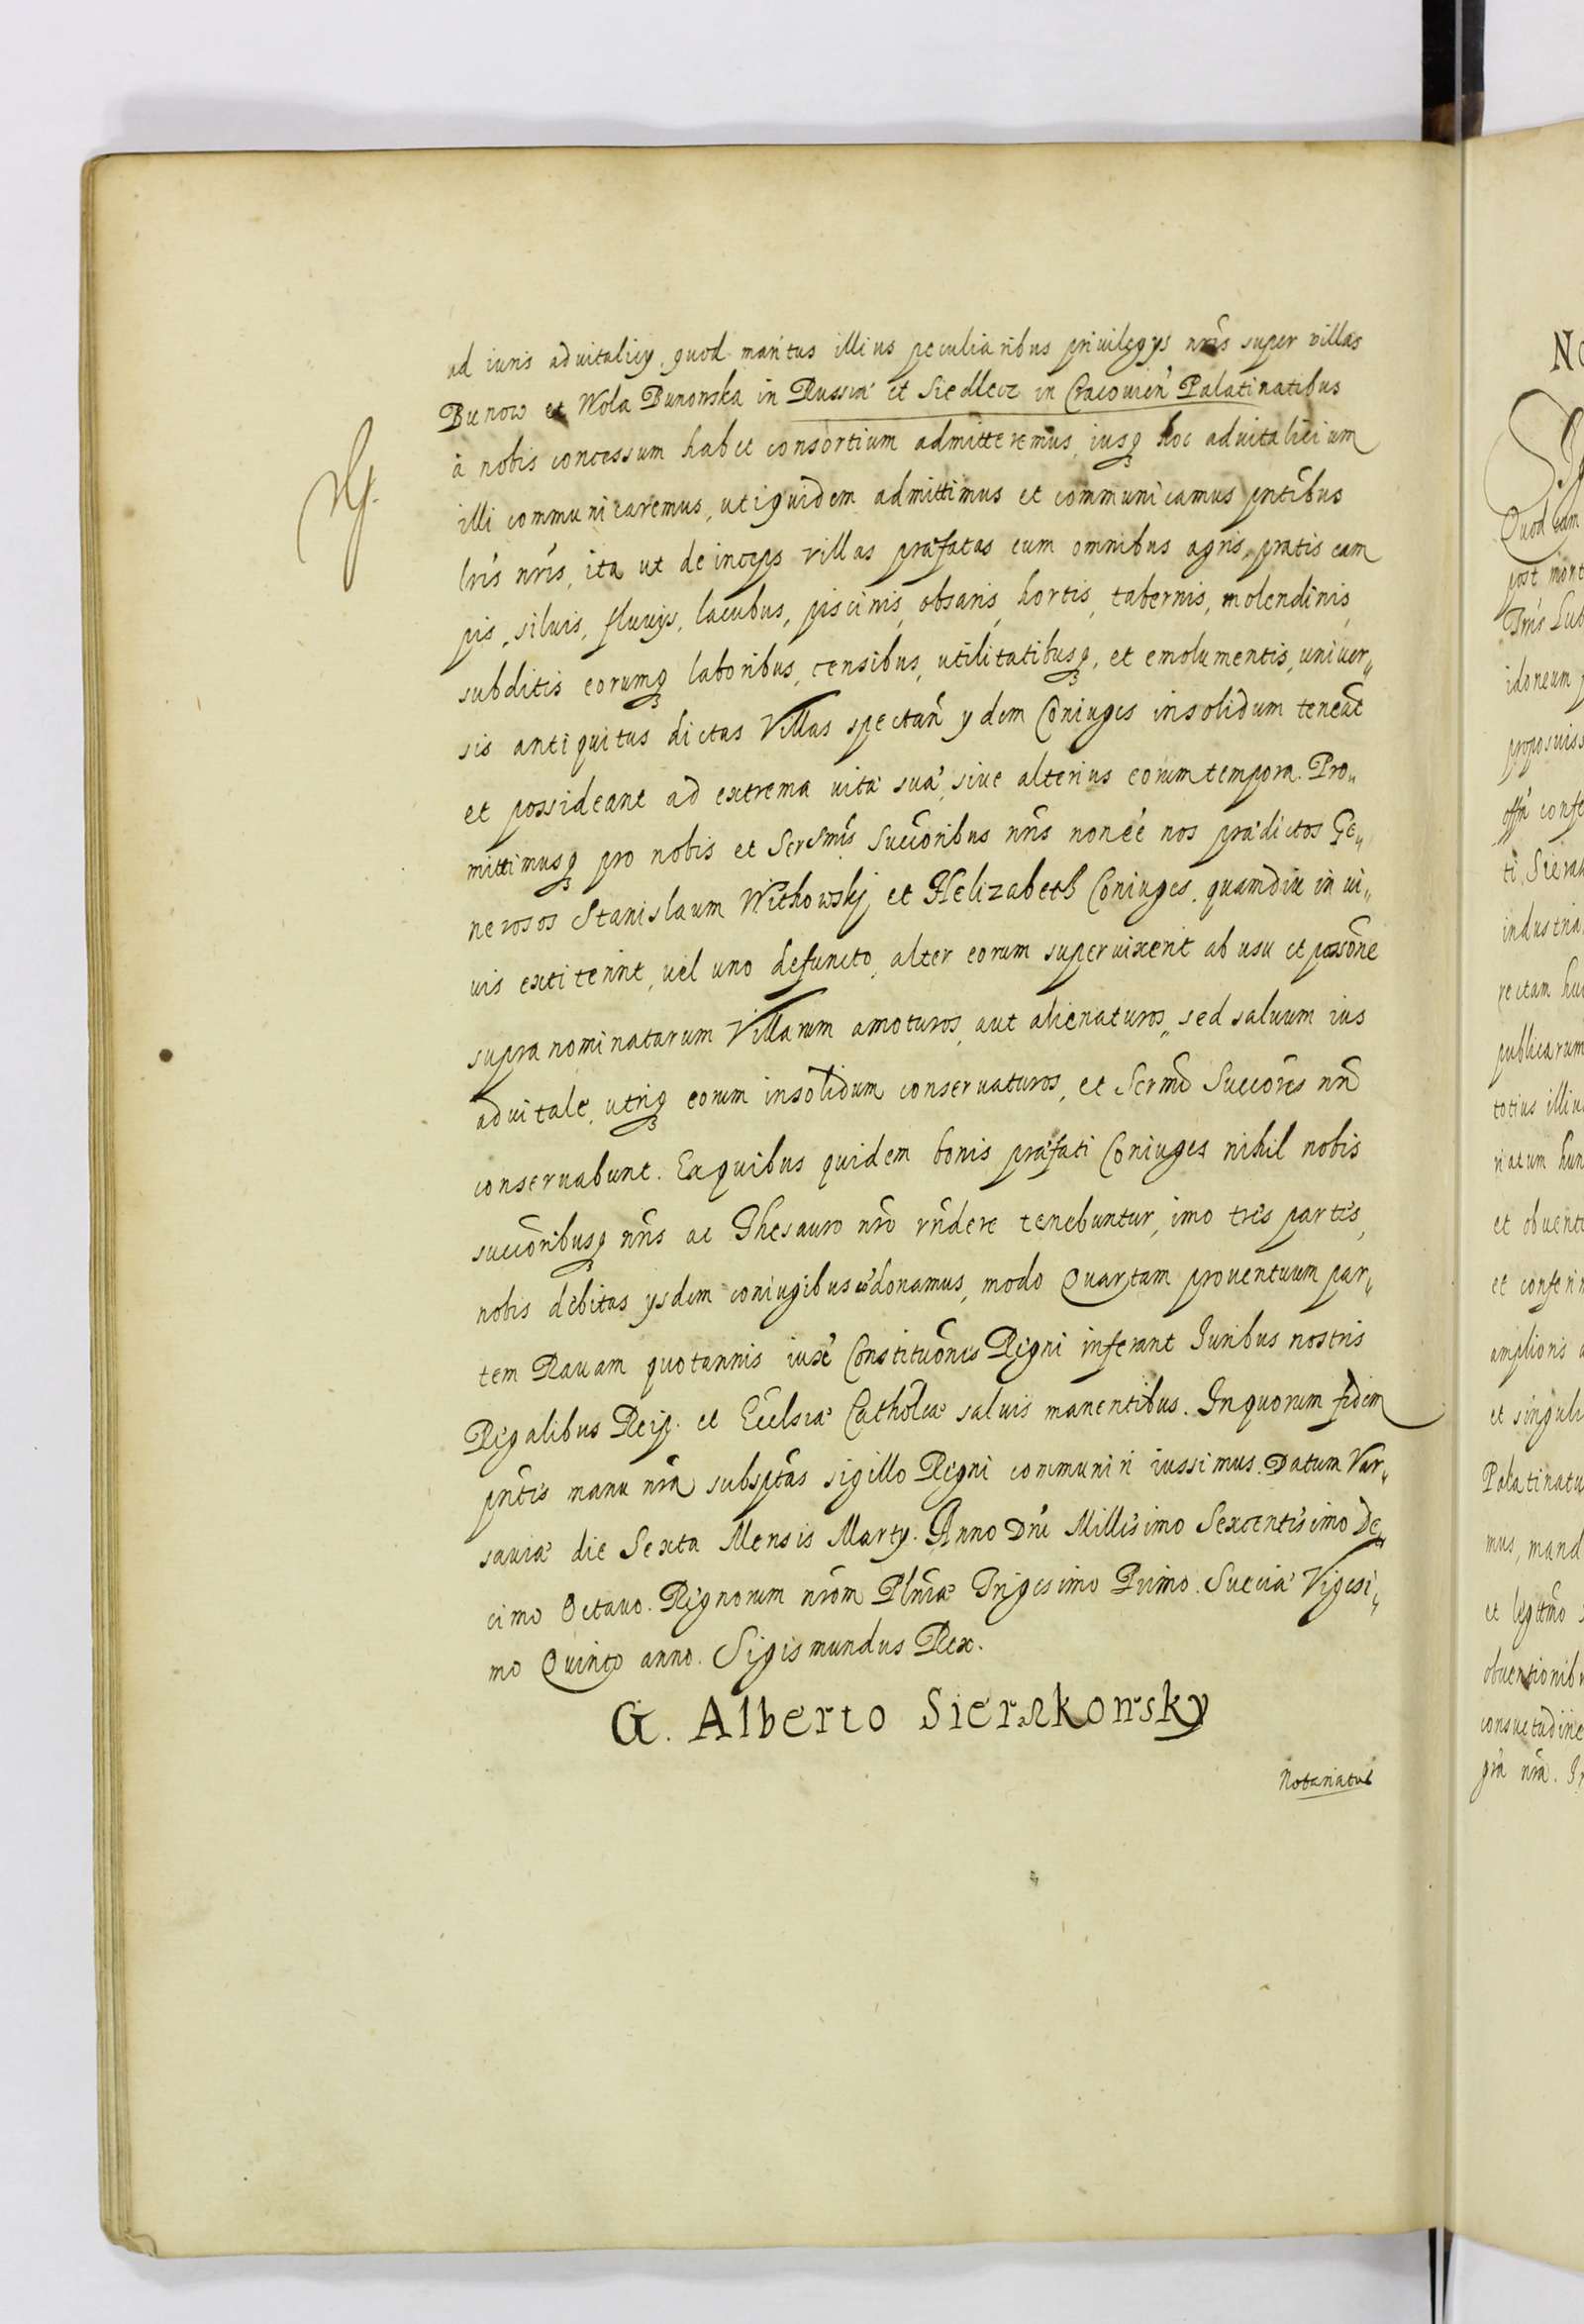 ad iuris aduitalicy, quod maritus illius peculiaribus priuilegys nris super villas
Bunow et Wola Bunowska in Russia et Siedlecz in Cracouien Palatinatibus
à nobis concessum habet consortium admitteremus, iusq hoc aduitalicium
illi communicaremus, uti quidem admittimus et communicamus pntibus
lris nris, ita ut deinceps villas præfatas cum omnibus agris, pratis cam
pis, siluis, fluuys, lacubus, piscinis, obsaris, hortis, tabernis, molendinis,
subditis eorumq laboribus, censibus, utilitatibusq, et emolumentis, uniuer„
sis antiquitus dictas Villas spectan ydem Coniuges insolidum teneat
et possideant ad extrema uitæ suæ, siue alterius eorum tempora. Pro„
mittimusq pro nobis et SerSmis Succoribus nris non eé nos prædictos Ge„
nerosos Stanislaum Withowskj et Helizabeth Coniuges, quamdiu in ui„
uis extiterint, uel uno defuncto, alter eorum superuixerit ab usu et possone
supra nominatarum Villarum amoturos, aut alienaturos, sed saluum ius
aduitale, utriq eorum insolidum conseruaturos, et Sermi Succores nri
conseruabunt. Ex quibus quidem bonis præfati Coniuges nihil nobis
succoribusq nris ac Thesauro nro rndere tenebuntur, imo tres partes,
nobis debitas ysdem coniugibus codonamus, modo Quartam prouentuum par„
tem Rauam quotannis iuxe Constituones Regni inferant Iuribus nostris
Regalibus Reip. et Ecclsiæ Catholcæ saluis manentibus. In quorum fidem
pntes manu nra subsptas sigillo Regni communiri iussimus. Datum Var„
sauiæ die Sexta Mensis Marty. Anno Dni Millesimo Sexcentesimo De„
cimo Octauo. Regnorum nrom Plniæ Trigesimo Primo. Sueciæ Vigesi„
mo Quinto anno. Sigismundus Rex.
G. Alberto Sierakowsky
Notariatus